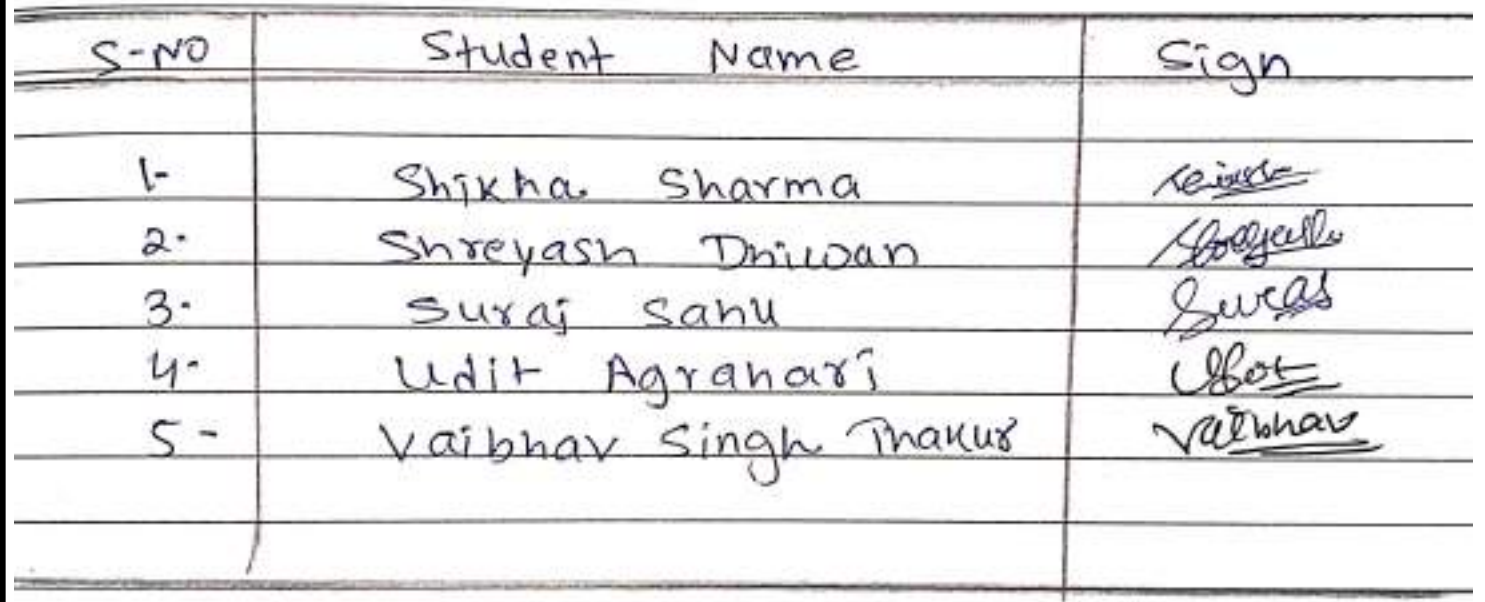 S-NO Student Name Sign
1- Shikha Sharma
2- Shreyash Dhiwan
3- Suraj Sahu Suraj
4- Udit Agrahari
5- Vaibhav Singh Thakur Vaibhav